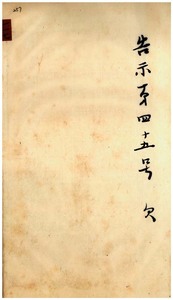 告示第四十五号 欠